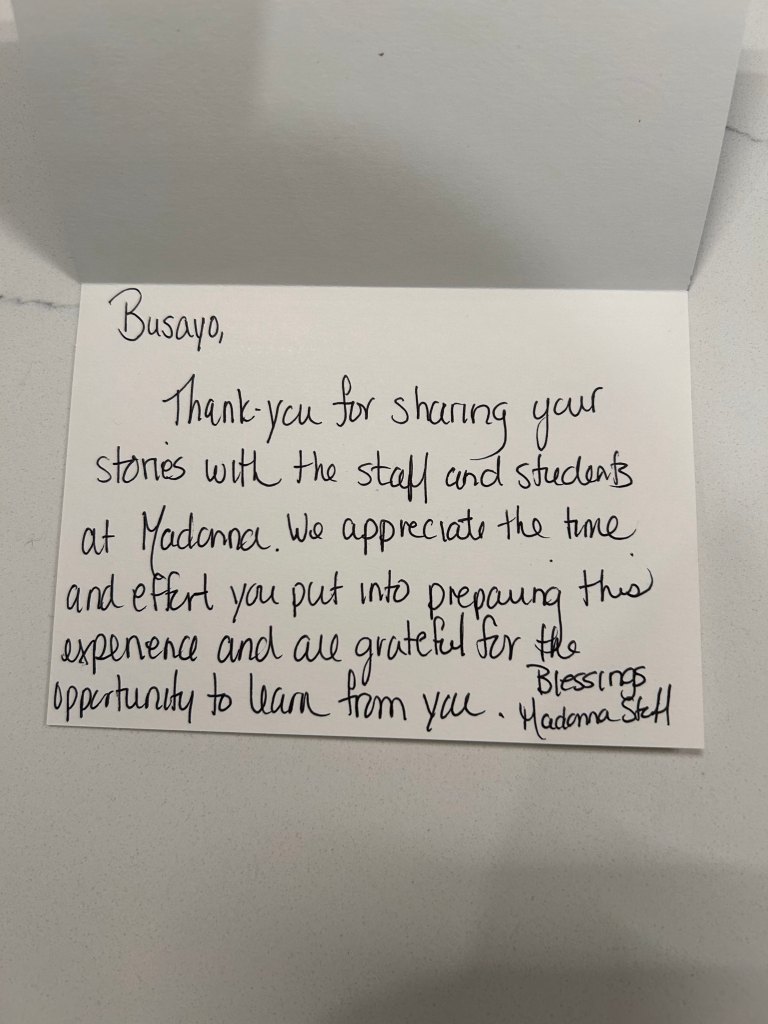 Busayo,
Thank-you for sharing your
stories with the staff and students
at Madonna. We appreciate the time
and effort you put into preparing this
experience and are grateful for the
opportunity to learn from you.
Blessings
Madonna Staff